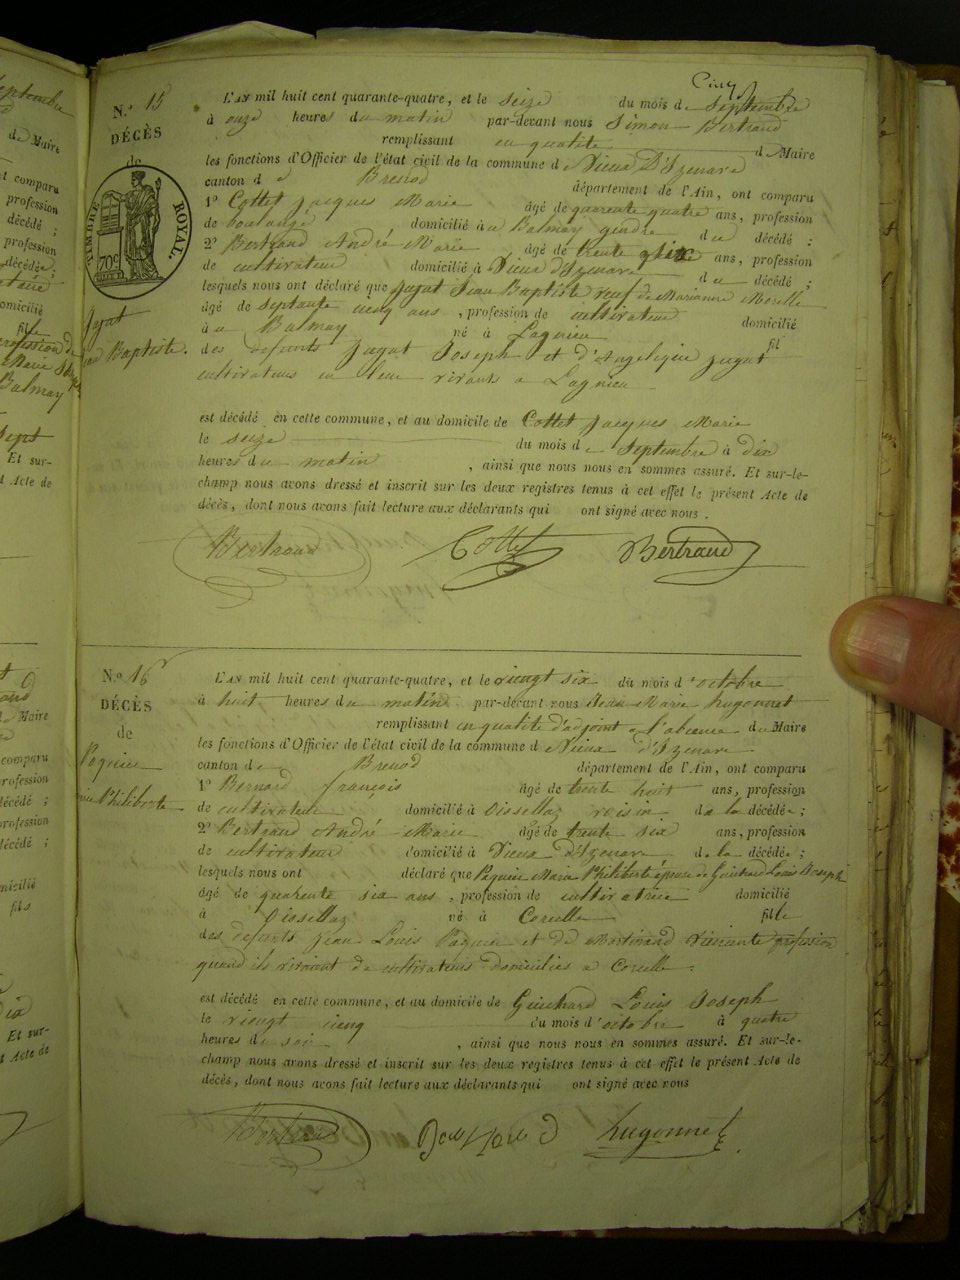 Cinq
N.° 15
DÉCÈS
de
TIMBRE ROYAL.
70c
Jugat
Jean Baptiste.
L'AN mil huit cent quarante-quatre, et le seize du mois de Septembre
à onze heures du matin par-devant nous Simon Bertrand
remplissant en qualité de Maire
les fonctions d'Officier de l'état civil de la commune de Vieux D'Izenave
canton de Brenod département de l'Ain, ont comparu
1° Cottet Jacques Marie âgé de quarente quatre ans, profession
de boulangé domicilié à Balmay gendre du décédé ;
2° Bertrand André Marie âgé de trente six ans, profession
de cultivateur domicilié à Vieux d'Izenave du décédé ;
lesquels nous ont déclaré que Jugat Jean Baptiste veuf de Marianne Morelle
âgé de septante cinq ans , profession de cultivateur domicilié
à Balmay né à Lagnieu fil
des defunts Jugat Joseph et d'Angelique Jugat
cultivateurs en leur vivants a Lagnieu
est décédé en cette commune, et au domicile de Cottet Jacques Marie
le seize du mois de Septembre à dix
heures du matin , ainsi que nous nous en sommes assuré. Et sur-le-
champ nous avons dressé et inscrit sur les deux registres tenus à cet effet le présent Acte de
décès, dont nous avons fait lecture aux déclarants qui ont signé avec nous .
Bertrand Cottet Bertrand
N.o 16
DÉCÈS
de
Paquier
Philiberte
L'AN mil huit cent quarante-quatre, et le vingt six du mois d'octobre
à huit heures du matin par-devant nous Jean Marie hugonnet
remplissant en qualité d'adjoint a l'absence du Maire
les fonctions d'Officier de l'état civil de la commune de Vieux d'Izenave
canton de Brenod département de l'Ain, ont comparu
1° Bernard françois âgé de trente huit ans, profession
de cultivateur domicilié à Oissellaz voisin de la décédée ;
2° Bertrand André Marie âgé de trente six ans, profession
de cultivateur domicilié à Vieux d'Izenave de la décédée ;
lesquels nous ont déclaré que Paquier Marie Philiberte épouse de Guichard Louis Joseph
âgé de quarente six ans , profession de cultivatrice domicilié
à Oissellaz né à Corcelle fille
des defunts Jean Louis Paquier et de Martinand profession
quand ils vivaient de cultivateurs domiciliés a Corcelle .
est décédé en cette commune, et au domicile de Guichard Louis Joseph
le vingt cinq du mois d'octobre à quatre
heures du soir , ainsi que nous nous en sommes assuré. Et sur-le-
champ nous avons dressé et inscrit sur les deux registres tenus à cet effet le présent Acte de
décès, dont nous avons fait lecture aux déclarants qui ont signé avec nous
Bertrand hugonnet